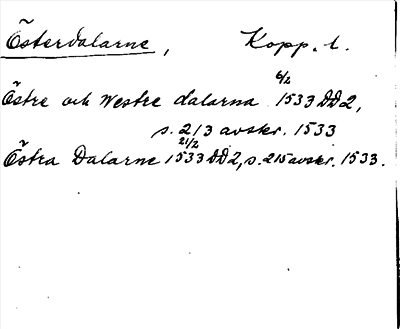 Österdalarne, Kopp. l.
6/2
Östre och Westre dalarna 1533 DD2,
s. 213 avskr. 1533
21/2
Östra Dalarne 1533 DD2, s. 215 avskr. 1533.